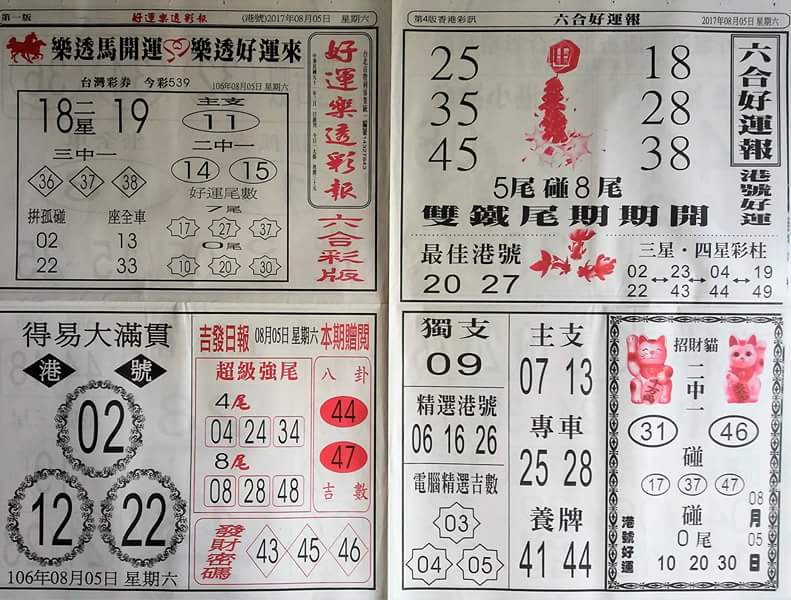 第一版
好運樂透彩報
(港號)2017年08月05日 星期六
樂透馬開運 樂透好運來
台灣彩券 今彩539
106年08月05日 星期六
18 二星 19
主支
11
三中一
36 37 38
二中一
14 15
好運尾數
7尾
17 27 37
0尾
10 20 30
拼孤碰
02
22
座全車
13
33
好運樂透彩報
六合彩版
第4版香港彩訊
六合好運報
2017年08月05日 星期六
25 18
35 28
45 38
5尾碰8尾
雙鐵尾期期開
六合好運報
港號好運
最佳港號
20 27
三星·四星彩柱
02 ↔ 23 ↔ 04 ↔ 19
22 43 44 49
得易大滿貫
港號
02
12 22
106年08月05日 星期六
吉發日報
08月05日 星期六
本期贈閱
超級強尾
4尾
04 24 34
8尾
08 28 48
八卦
44
47
吉數
發財密碼
43 45 46
獨支
09
精選港號
06 16 26
電腦精選吉數
03
04 05
主支
07 13
專車
25 28
養牌
41 44
招財貓
二中一
31 46
碰
17 37 47
碰
0尾
10 20 30
港號好運
08月05日